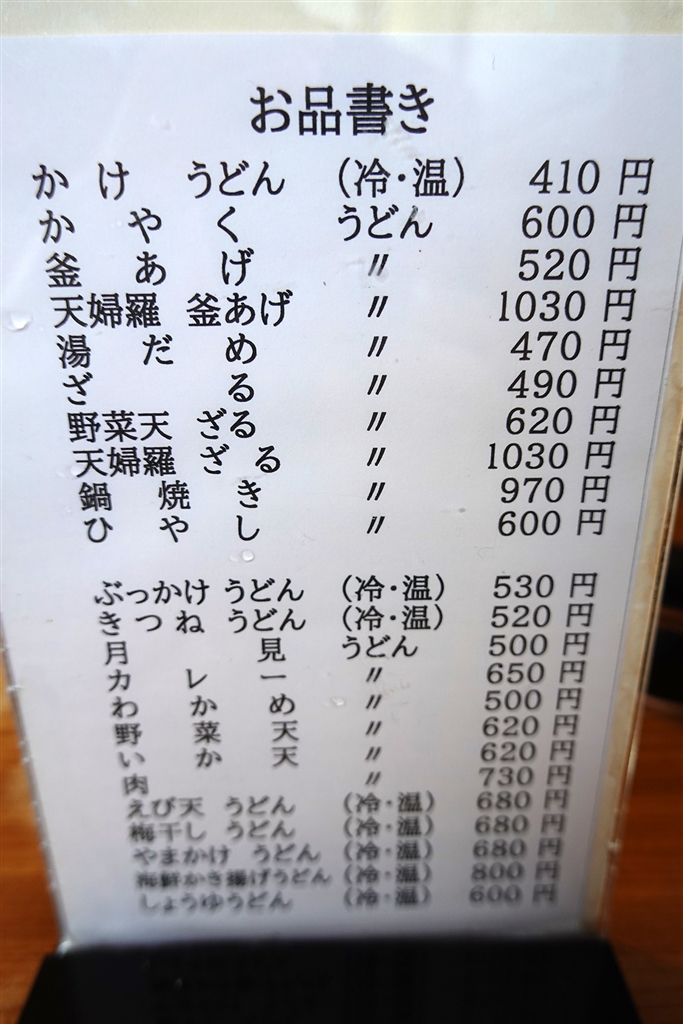 お品書き
かけ うどん (冷・温) 410 円
かやく うどん 600 円
釜あげ 〃 520 円
天婦羅 釜あげ 〃 1030 円
湯だめ 〃 470 円
ざる 〃 490 円
野菜天 ざる 〃 620 円
天婦羅 ざる 〃 1030 円
鍋焼き 〃 970 円
ひやし 〃 600 円
ぶっかけ うどん (冷・温) 530 円
きつね うどん (冷・温) 520 円
月見 うどん 500 円
カレー 〃 650 円
わかめ 〃 500 円
野菜天 〃 620 円
いか天 〃 620 円
肉 〃 730 円
えび天 うどん (冷・温) 680 円
梅干し うどん (冷・温) 680 円
やまかけ うどん (冷・温) 680 円
海鮮かき揚げうどん (冷・温) 800 円
しょうゆうどん (冷・温) 600 円